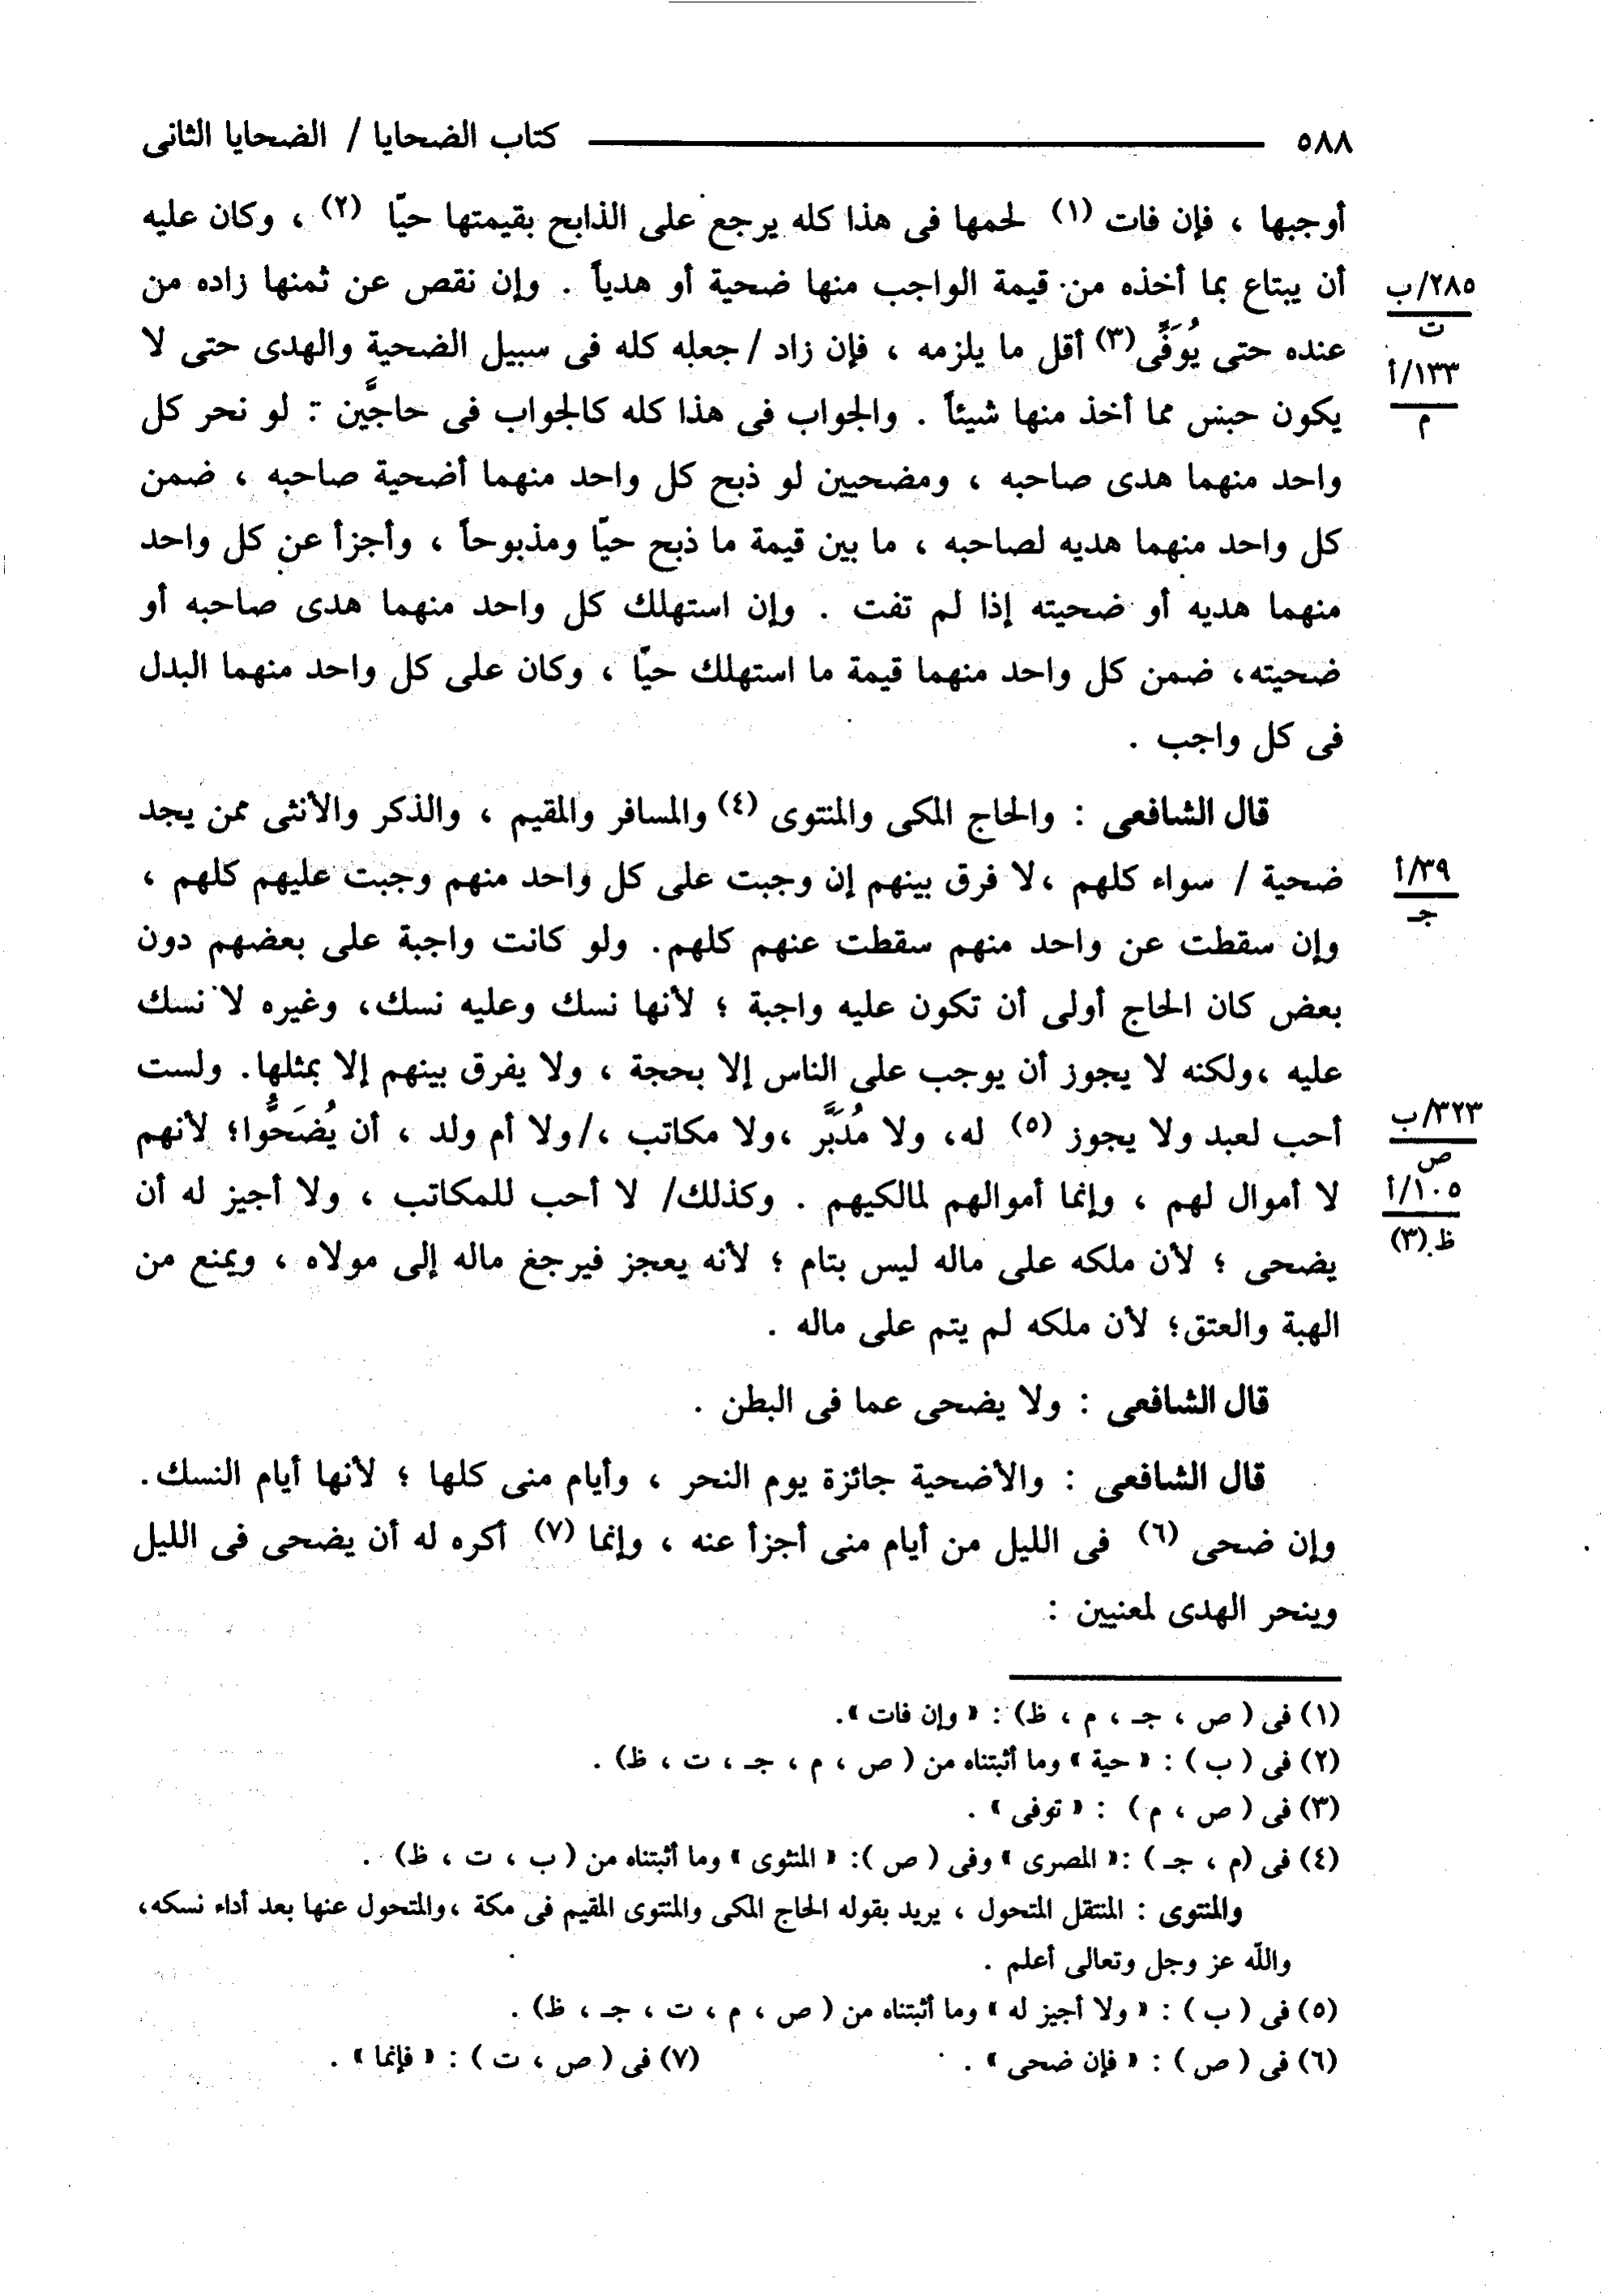 ٥٨٨ كتاب الضحايا / الضحايا الثانى
أوجبها ، فإن فات (١) لحمها فى هذا كله يرجع على الذابح بقيمتها حيّا (٢) ، وكان عليه
أن يبتاع بما أخذه من قيمة الواجب منها ضحية أو هدياً . وإن نقص عن ثمنها زاده من
٢٨٥/ب
ت
عنده حتى يُوَفَّى (٣) أقل ما يلزمه ، فإن زاد / جعله كله فى سبيل الضحية والهدى حتى لا
١٣٣/أ
م
يكون حبس مما أخذ منها شيئاً . والجواب فى هذا كله كالجواب فى حاجَّين : لو نحر كل
واحد منهما هدى صاحبه ، ومضحيين لو ذبح كل واحد منهما أضحية صاحبه ، ضمن
كل واحد منهما هديه لصاحبه ، ما بين قيمة ما ذبح حيّا ومذبوحاً ، وأجزأ عن كل واحد
منهما هديه أو ضحيته إذا لم تفت . وإن استهلك كل واحد منهما هدى صاحبه أو
ضحيته، ضمن كل واحد منهما قيمة ما استهلك حيّا ، وكان على كل واحد منهما البدل
فى كل واجب .
قال الشافعى : والحاج المكى والمنتوى (٤) والمسافر والمقيم ، والذكر والأنثى ممن يجد
ضحية / سواء كلهم ،لا فرق بينهم إن وجبت على كل واحد منهم وجبت عليهم كلهم ،
٣٩/أ
جـ
وإن سقطت عن واحد منهم سقطت عنهم كلهم. ولو كانت واجبة على بعضهم دون
بعض كان الحاج أولى أن تكون عليه واجبة ؛ لأنها نسك وعليه نسك، وغيره لا نسك
عليه ،ولكنه لا يجوز أن يوجب على الناس إلا بحجة ، ولا يفرق بينهم إلا بمثلها. ولست
أحب لعبد ولا يجوز (٥) له، ولا مُدَبَّر ،ولا مكاتب ،/ولا أم ولد ، أن يُضَحُّوا؛ لأنهم
٣٢٣/ب
ص
لا أموال لهم ، وإنما أموالهم لمالكيهم . وكذلك/ لا أحب للمكاتب ، ولا أجيز له أن
١٠٥/أ
ظ (٣)
يضحى ؛ لأن ملكه على ماله ليس بتام ؛ لأنه يعجز فيرجع ماله إلى مولاه ، ويمنع من
الهبة والعتق؛ لأن ملكه لم يتم على ماله .
قال الشافعى : ولا يضحى عما فى البطن .
قال الشافعى : والأضحية جائزة يوم النحر ، وأيام منى كلها ؛ لأنها أيام النسك.
وإن ضحى (٦) فى الليل من أيام منى أجزأ عنه ، وإنما (٧) أكره له أن يضحى فى الليل
وينحر الهدى لمعنيين :
(١) فى ( ص ، جـ ، م ، ظ) : « وإن فات ».
(٢) فى ( ب ) : « حية » وما أثبتناه من ( ص ، م ، جـ ، ت ، ظ) .
(٣) فى ( ص ، م ) : « توفى » .
(٤) فى (م ، جـ ) :« المصرى » وفى ( ص ): « المثوى » وما أثبتناه من ( ب ، ت ، ظ) .
والمنتوى : المنتقل المتحول ، يريد بقوله الحاج المكى والمنتوى المقيم فى مكة ،والمتحول عنها بعد أداء نسكه،
واللّه عز وجل وتعالى أعلم .
(٥) فى ( ب ) : « ولا أجيز له » وما أثبتناه من ( ص ، م ، ت ، جـ ، ظ) .
(٦) فى ( ص ) : « فإن ضحى » . (٧) فى ( ص ، ت ) : « فإنما » .